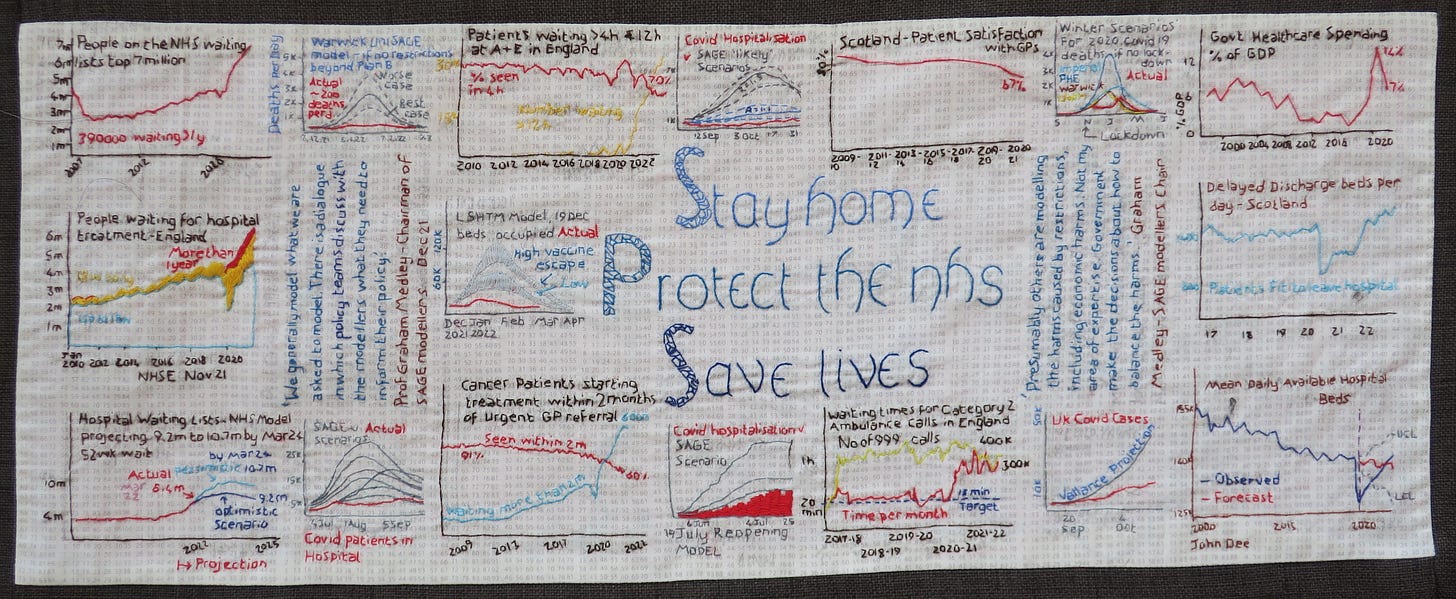 People on the NHS waiting
lists top 7million
7m
6m
5m
4m
3m
2m
1m
390000 waiting >1y
2007
2012
2020
Deaths per Day
Warwick Uni SAGE
model if no restrictions
beyond Plan B
5K
4K
3K
2K
1K
Actual
~200
deaths
perd
Worse
case
Best
case
Patients waiting >4h & 12h
at A+E in England
% seen
in 4h
Number waiting
>12h
70%
2010 2012 2014 2016 2018 2020 2022
Covid Hospitalisation
v SAGE 'likely'
Scenarios
1K
12Sep 3 Oct 17 31
Scotland-Patient Satisfaction
with GPs
90%
67%
2009- 2011- 2013- 2015- 2017- 2019- 2020
10 12 14 16 18 20 21
Winter Scenarios
For 2020 Covid 19
deaths if no lock-
down
Imperial
PHE
Warwick
Actual
4K
3K
2K
1K
S N J M J
Lockdown
Govt Healthcare Spending
% of GDP
12
6
0
% GDP
2000 2004 2008 2012 2016 2020
People waiting for hospital
treatment-England
More than
1 year
6m
5m
4m
3m
2m
1m
Jan
2010 2012 2014 2016 2018 2020
NHSE Nov 21
'We generally model what we are
asked to model. There is a dialogue
in which policy teams discuss with
the modellers what they need to
inform their policy.'
Prof Graham Medley-Chairman of
SAGE modellers. Dec 21
LSHTM Model, 19 Dec
beds occupied Actual
120K
60K
High vaccine
escape
Low
Dec Jan Feb Mar Apr
2021 2022
Stay home
Protect the nhs
Save lives
'Presumably others are modelling
the harms caused by restrictions,
including economic harms. Not my
area of expertise. Government
make the decisions about how to
balance the harms.' Graham
Medley-SAGE modellers Chair
Delayed Discharge beds per
day-Scotland
Patients fit to leave hospital
17 18 19 20 21 22
Hospital Waiting Lists-NHS Model
projecting 9.2m to 10.7m by Mar 24
52wk wait
by Mar 24
Actual
pessimistic 10.7m
Mar
22
6.4m
9.2m
optimistic
scenario
10m
4m
2022 2025
Projection
SAGE v Actual
scenarios
25K
15K
5K
4Jul 1Aug 5Sep
Covid patients in
Hospital
Cancer Patients starting
treatment within 2 months
of Urgent GP referral
Seen within 2m
91%
60%
Waiting more than 2m
2009 2013 2017 2020 2022
Covid hospitalisation v
SAGE
Scenario
4Jun 4Jul 25
19 July Reopening
MODEL
Waiting times for Category 2
Ambulance calls in England
No of 999 calls
400K
300K
1h
20
min
18 min
Target
Time per month
2017-18 2019-20 2021-22
2018-19 2020-21
UK Covid Cases
50K
10K
Vallance Projection
20
Sep
4
Oct
Mean Daily Available Hospital
Beds
155K
140K
125K
UCL
LCL
Observed
Forecast
2000 2015 2020
John Dee